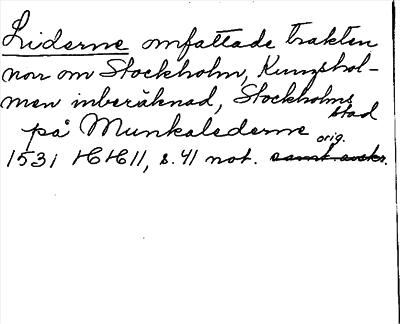 Liderne omfattade trakten
norr om Stockholm, Kungshol-
men inberäknad, Stockholms
stad
på Munkalederne orig.
1531 HH 11, s. 41 not. samt avskr.